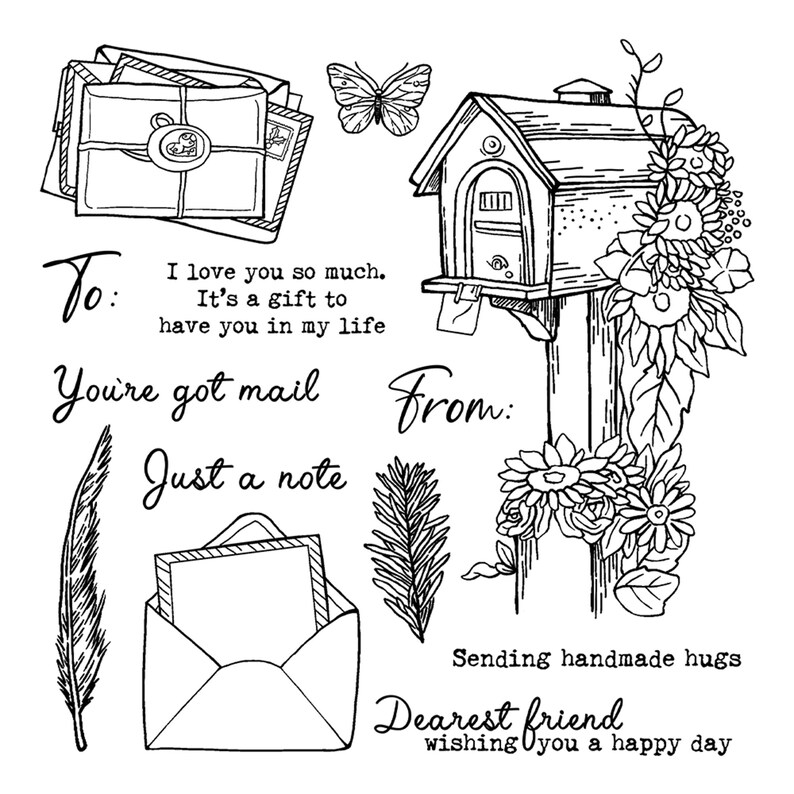 To:
I love you so much.
It's a gift to
have you in my life
You're got mail
From:
Just a note
Sending handmade hugs
Dearest friend
wishing you a happy day